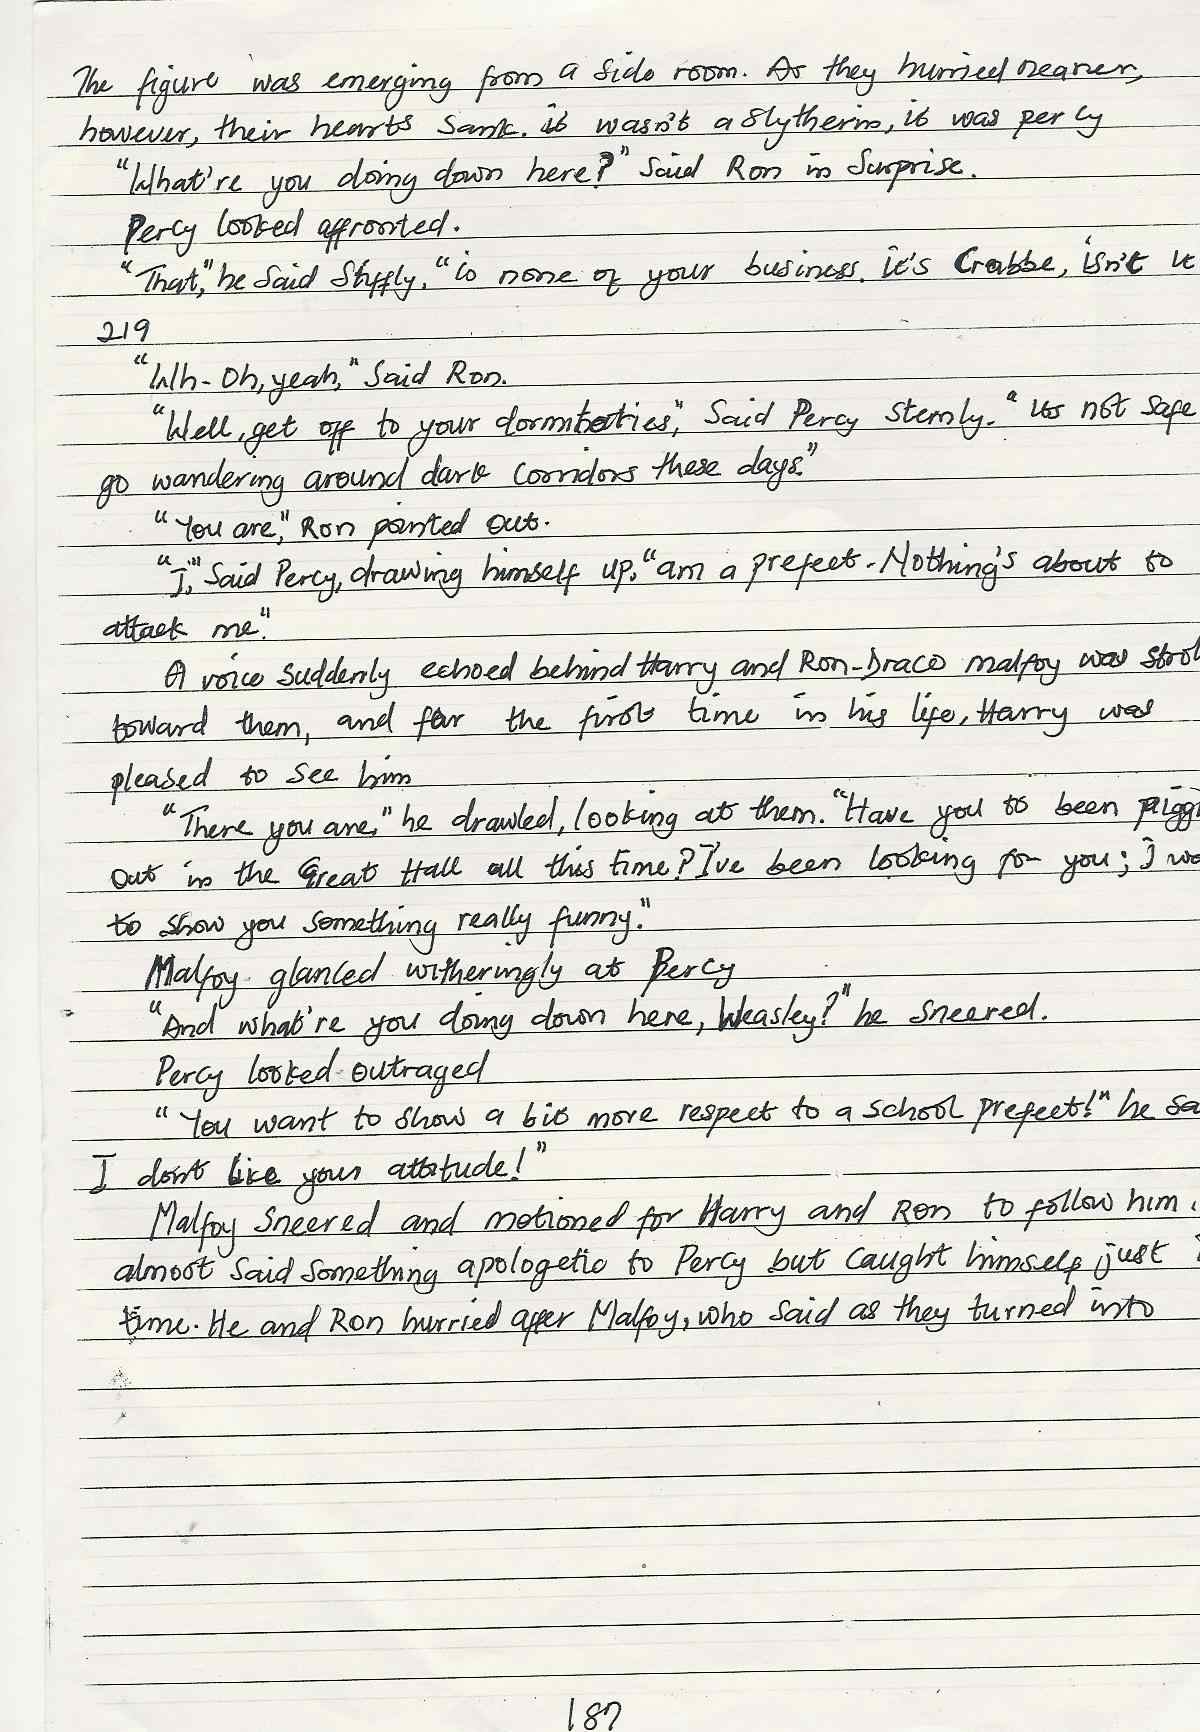 The figure was emerging from a side room. As they hurried nearer,
however, their hearts sank. it wasn't a slytherin, it was percy
"What're you doing down here?" Said Ron in Surprise.
Percy looked affronted.
"That," he Said Stiffly, "is none of your business. it's Crabbe, isn't it
219
"Wh- Oh, yeah," Said Ron.
"Well, get off to your dormitories," Said Percy Sternly. "Its not Safe
go wandering around dark Corridors these days."
"You are," Ron pointed Out.
"I," Said Percy, drawing himself up, "am a prefect. Nothing's about to
attack me."
A voice Suddenly echoed behind Harry and Ron-Draco malfoy was strol
toward them, and for the first time in his life, Harry was
pleased to see him
"There you are," he drawled, looking at them. "Have you to been piggi
Out in the Great Hall all this time? I've been looking for you; I wa
to show you something really funny."
Malfoy glanced witheringly at Percy
"And what're you doing down here, Weasley?" he Sneered.
Percy looked outraged
"You want to show a bit more respect to a school prefect!" he sa
I don't like your attitude!"
Malfoy Sneered and motioned for Harry and Ron to follow him.
almost Said Something apologetic to Percy but Caught himself just i
time. He and Ron hurried after Malfoy, who Said as they turned into
187